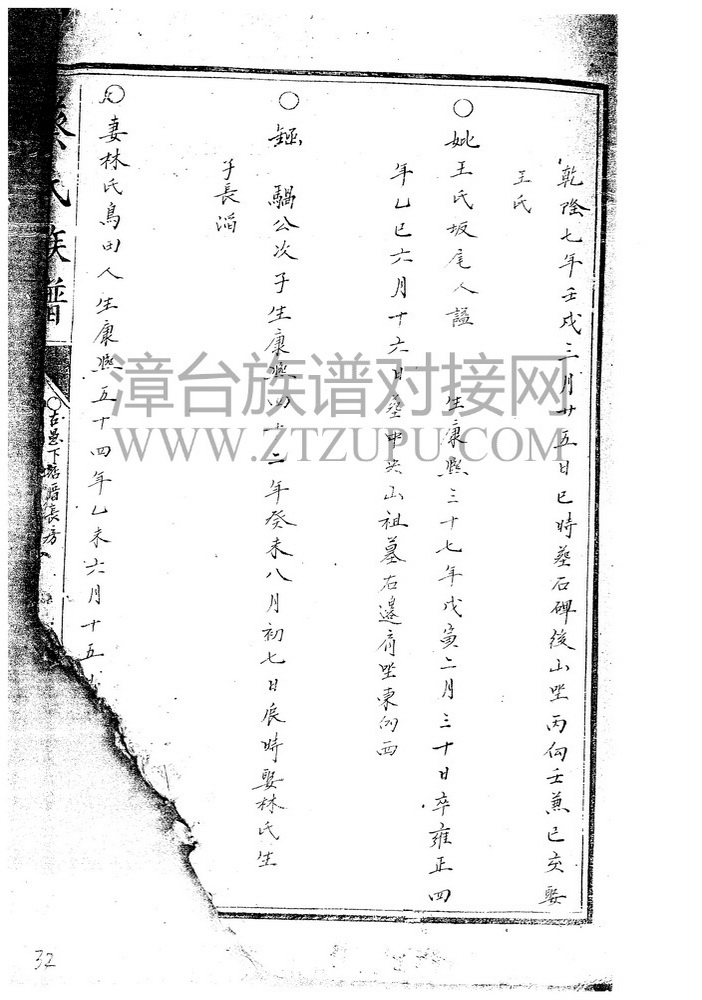 乾隆七年壬戌三月廿五日巳時葬石碑後山坐丙向壬兼巳亥娶
王氏
妣王氏坂尾人謚 生康熙三十七年戊寅二月三十日卒雍正四
年乙巳六月十六日葬中央山祖墓右邊肩坐東向西
騧公次子生康熙四十二年癸未八月初七日辰時娶林氏生
子長滔
妻林氏烏田人生康熙五十四年乙未六月十五
蔡氏族譜
下
長房
漳台族谱对接网
WWW.ZTZUPU.COM
32